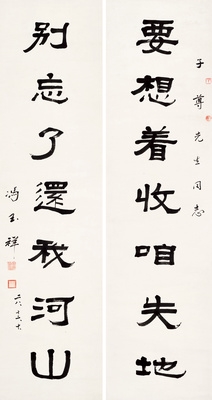 子尊先生同志
要想着收咱失地
别忘了還我河山
馮玉祥